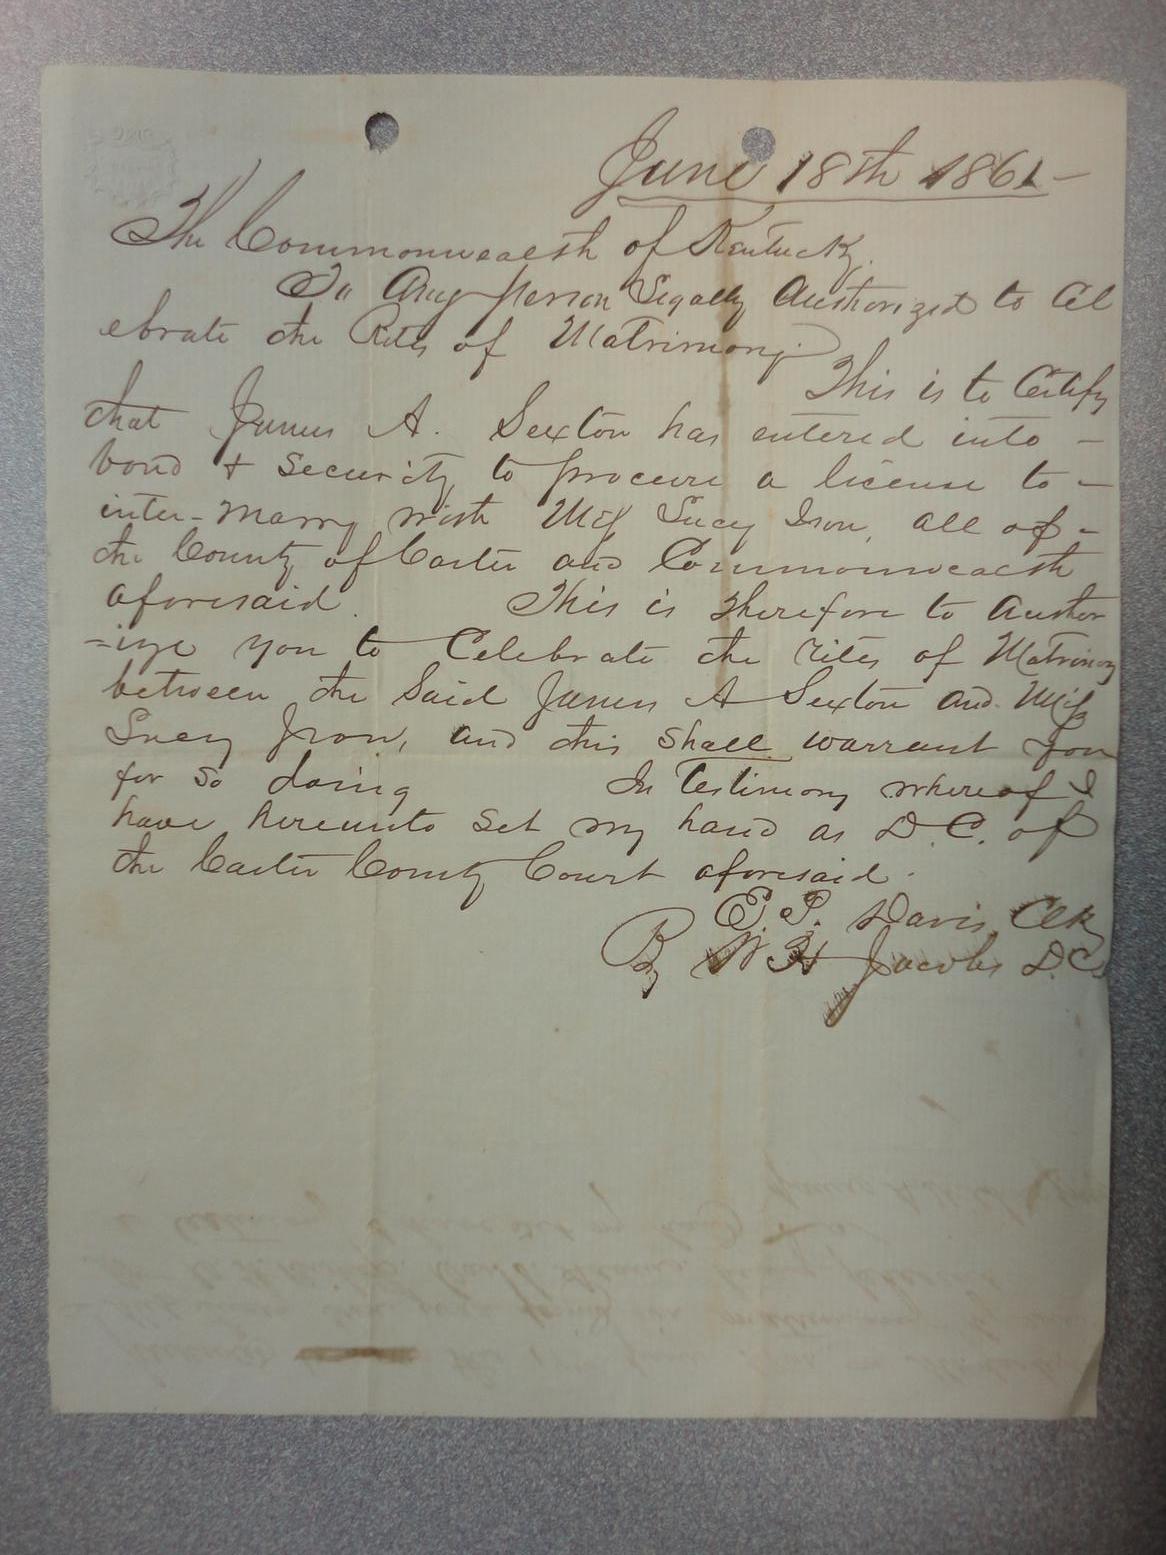 June 18th 1861 —
The Commonwealth of Kentucky.
To Any person Legally Authorized to Cel
ebrate the Rites of Matrimony.
This is to Certify
that James A. Sexton has entered into —
bond + security to procure a license to —
inter-marry with Miss Lucy Ison, all of —
the County of Carter and Commonwealth
aforesaid. This is therefore to author
=ize you to Celebrate the rites of Matrimony
between the said James A Sexton and Miss
Lucy Ison, and this shall warrant you
for so doing In testimony whereof I
have hereunto set my hand as D.C. of
the Carter County Court aforesaid.
E. P. Davis, Clk
By W H Jacobs D.C.